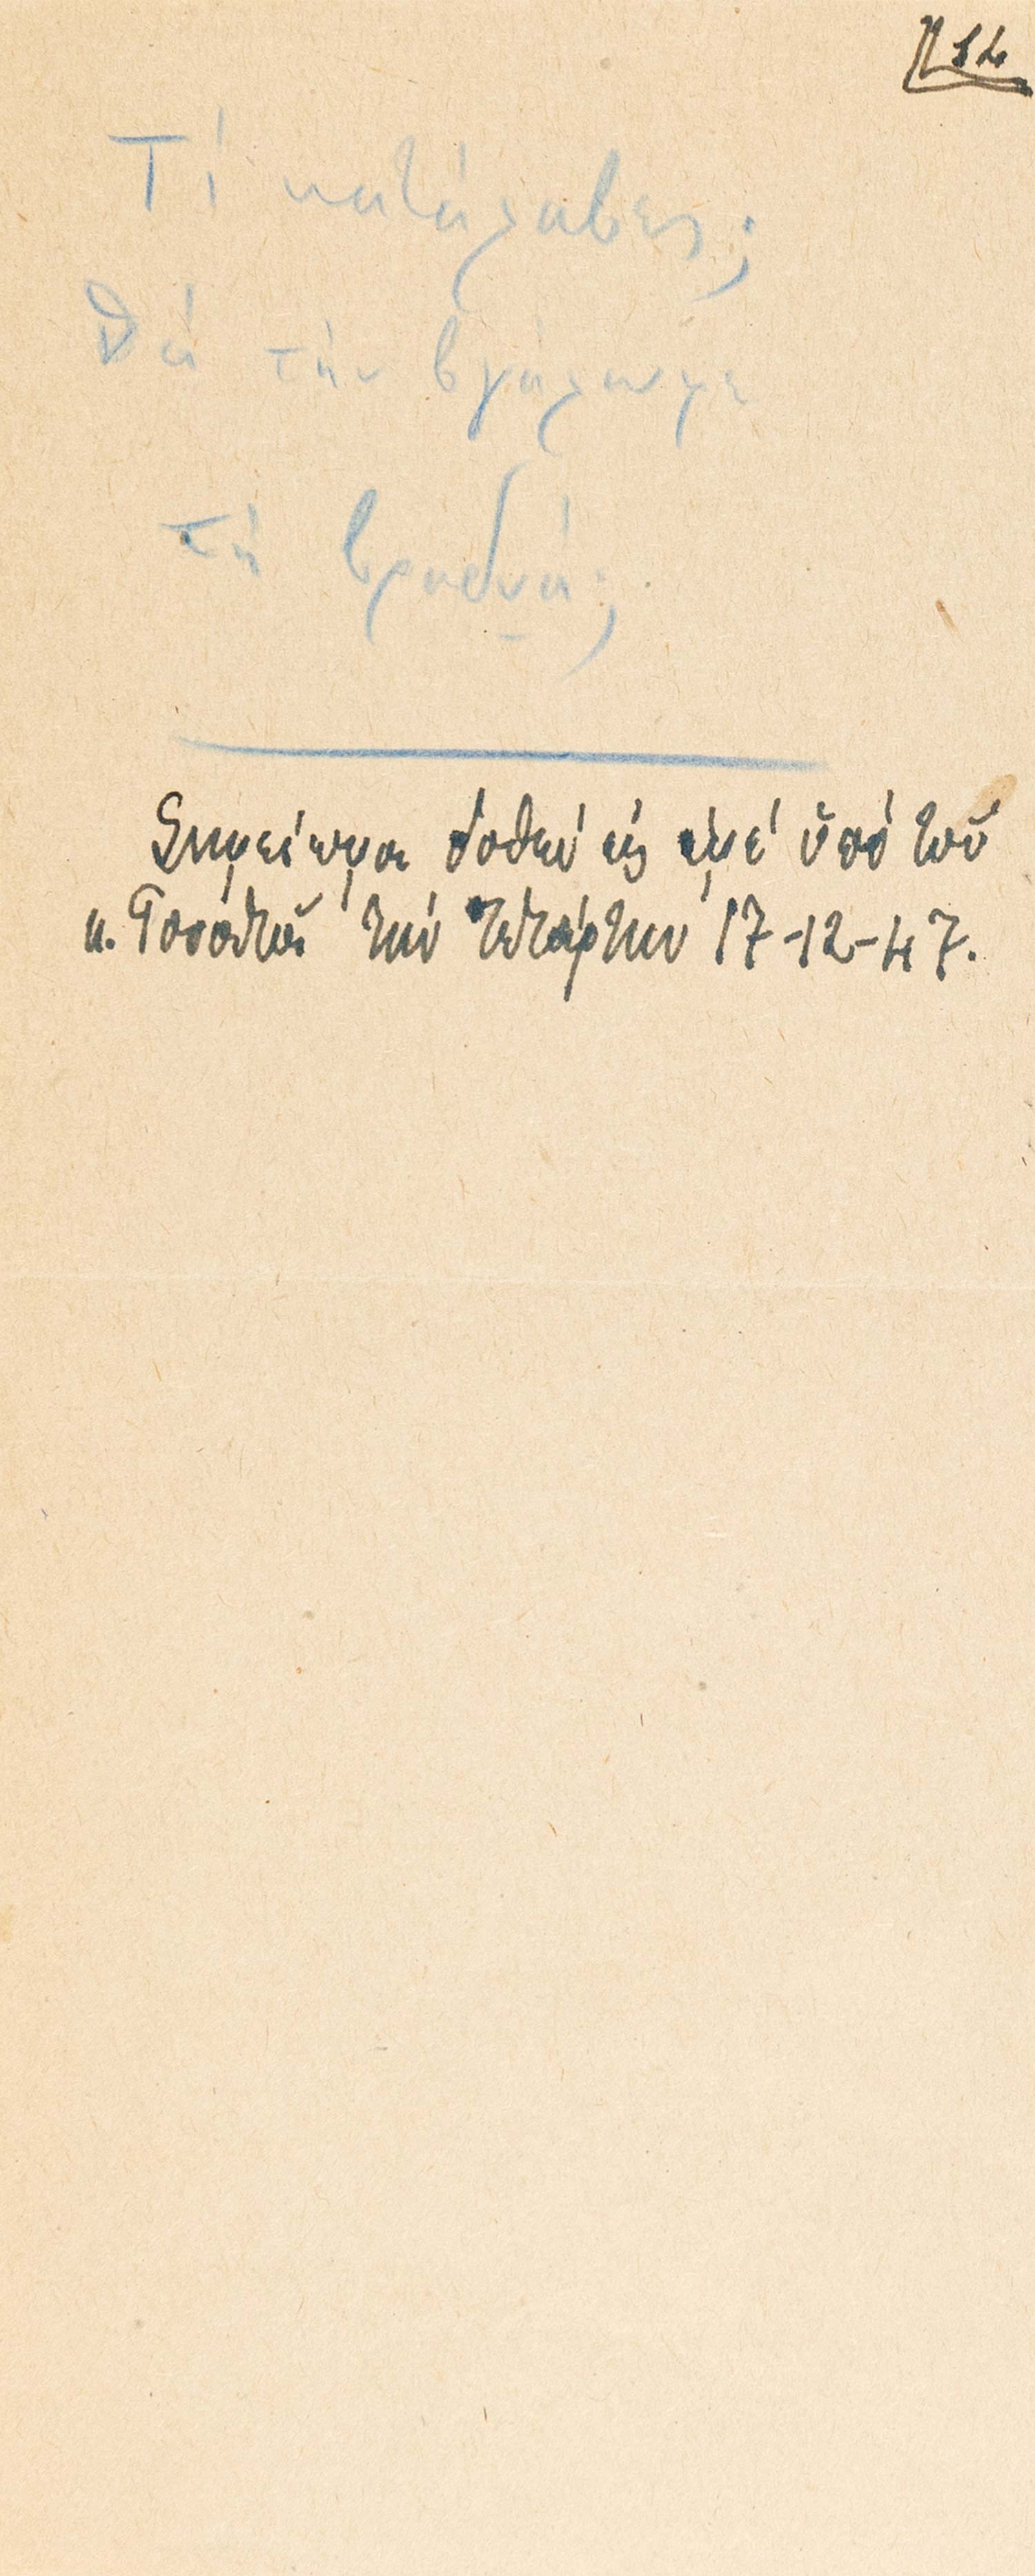 12
Τί κατάλαβες;
Θά τήν βγάλωμε
τή βραδυά;
Σημείωμα δοθέν εἰς ἐμέ ὑπό τοῦ
κ. τήν Τετάρτην 17-12-47.